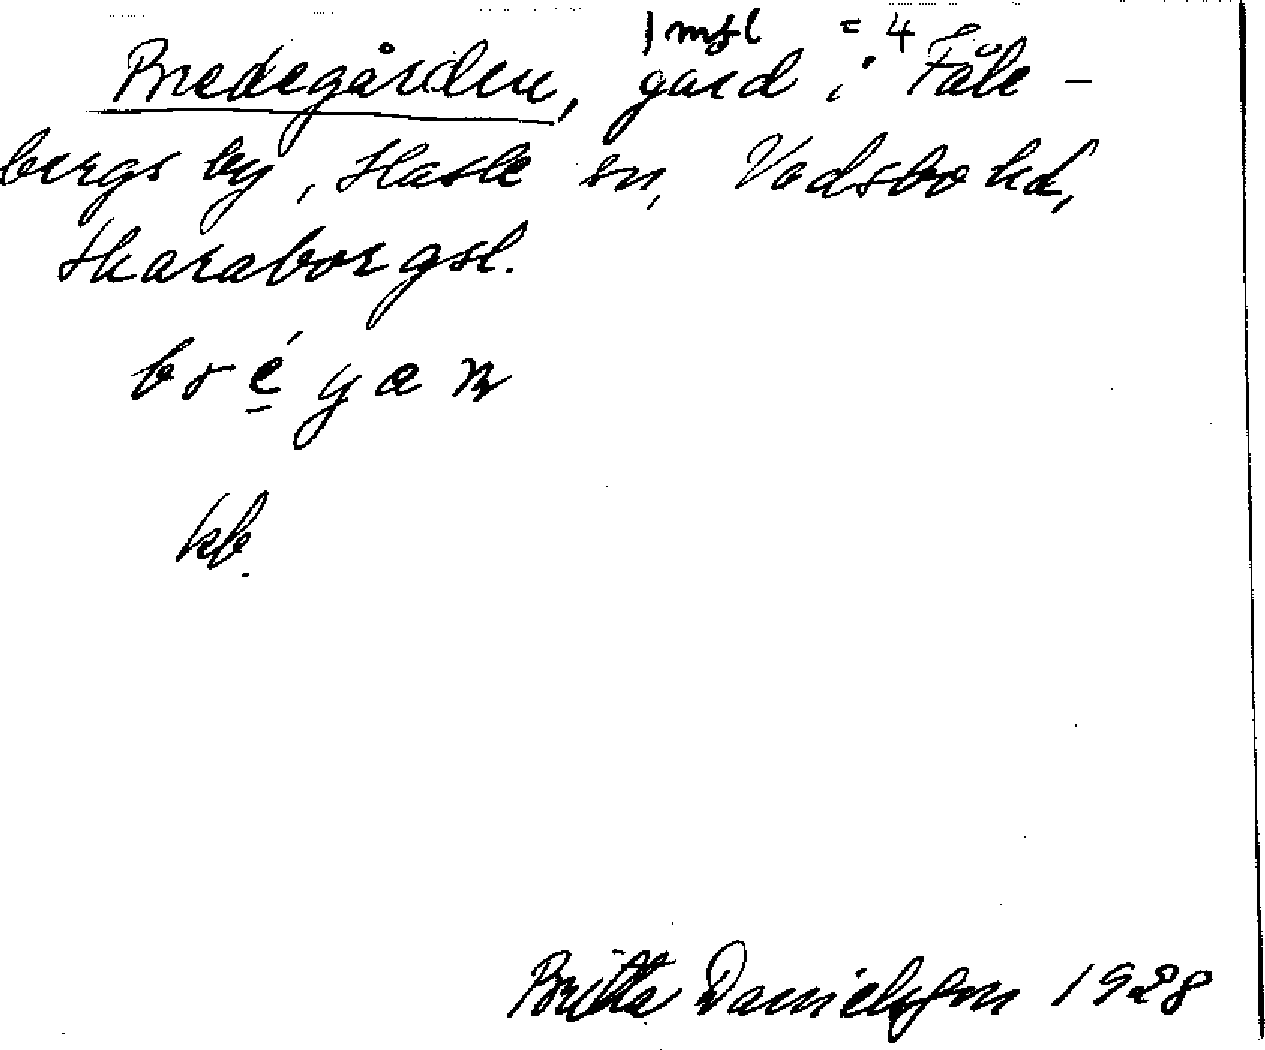 1 mtl = 4
Bredegården, gård i Fåle-
bergs by, Hassle sn, Vadsbo hd,
Skaraborgs l.
kb.
Britta Danielsson 1928